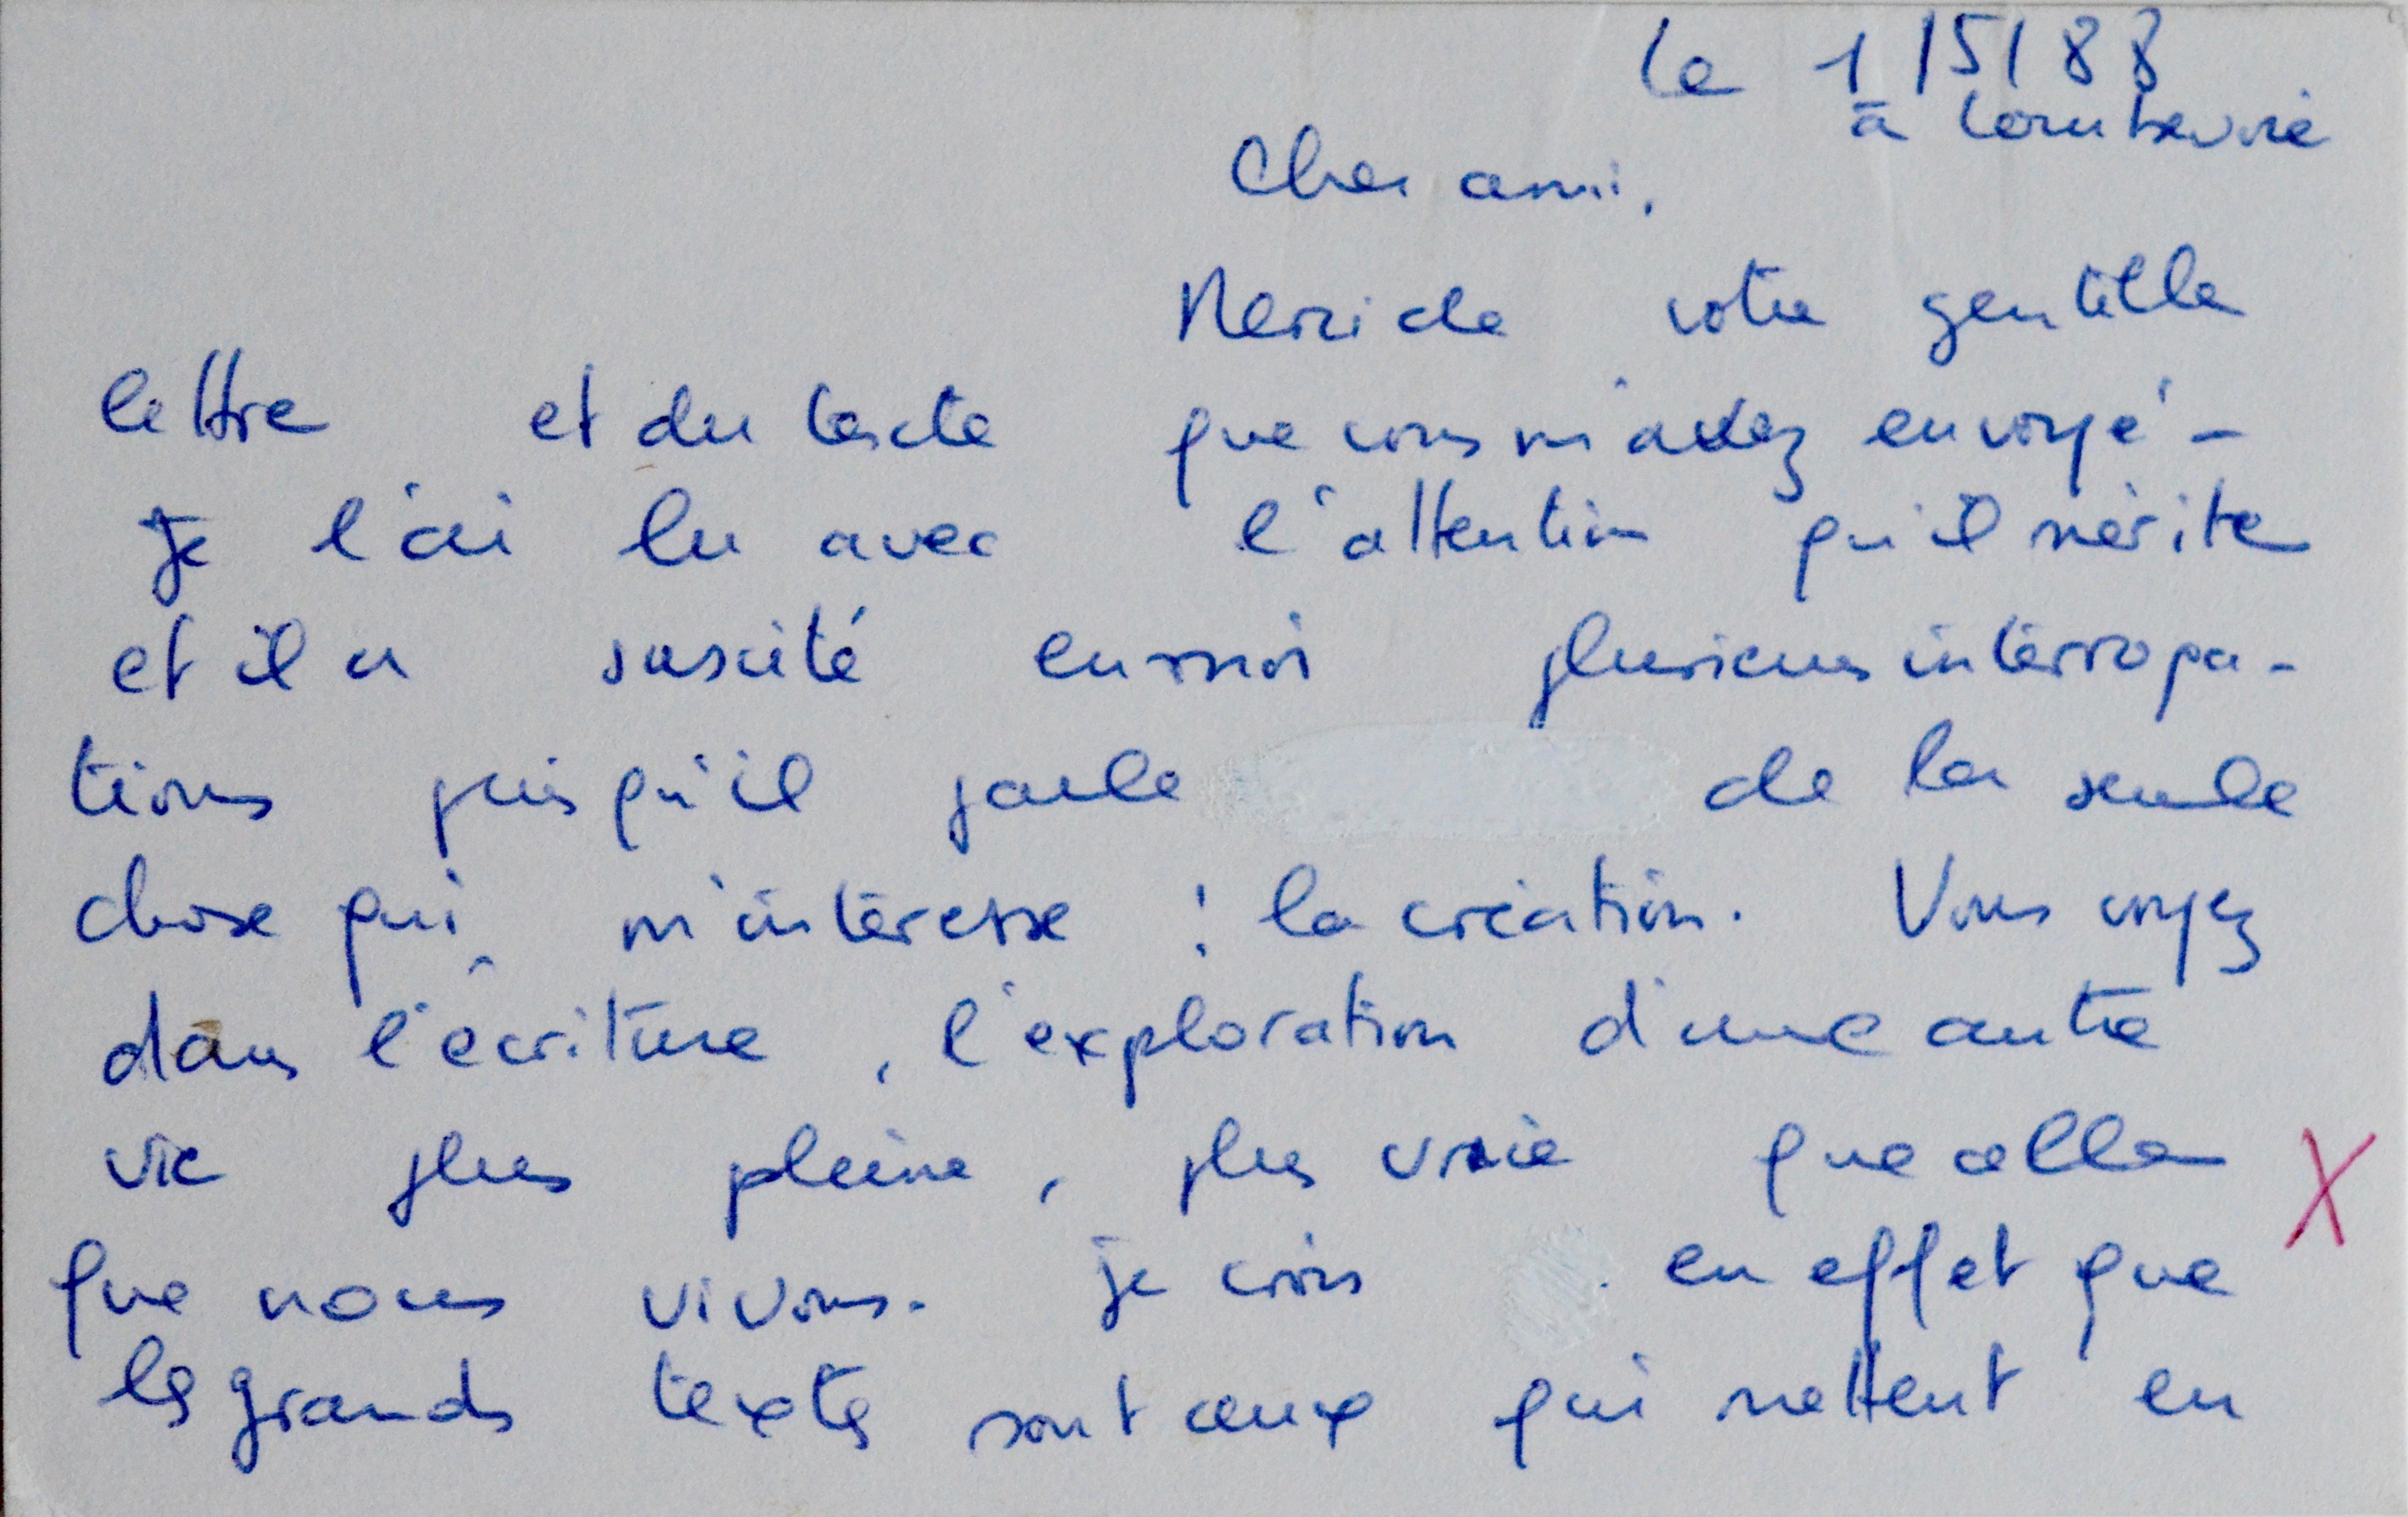 le 1/5/88
à
Cher ami,
Merci de votre gentille
lettre et du texte que vous m'avez envoyé -
Je l'ai lu avec l'attention qu'il mérite
et il a suscité en moi plusieurs intérroga-
tions puisqu'il parle de la seule
chose qui m'intéresse : la création. Vous voyez
dans l'écriture, l'exploration d'une autre
vie plus pleine, plus vraie que celle
que nous vivons. je crois en effet que
les grands textes sont ceux qui mettent en
X